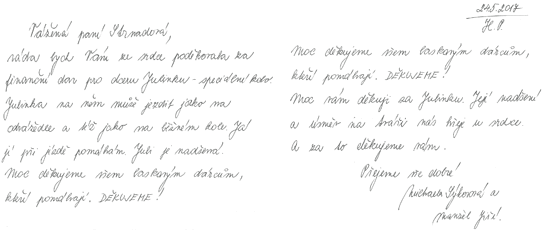 Vážená paní Strnadová,
ráda bych Vám ze srdce poděkovala za
finanční dar pro dceru Julinku - speciální kolo.
Julinka na něm může jezdit jako na
odrážedle a též jako na běžném kole. Já
jí při jízdě pomáhám. Juli je nadšená.
Moc děkujeme všem laskavým dárcům,
kteří pomáhají. DĚKUJEME!
24.5.2017
H.P.
Moc děkujeme všem laskavým dárcům,
kteří pomáhají. DĚKUJEME!
Moc vám děkuji za Julinku. Její nadšení
a úsměv na tváři nás hřejí u srdce.
A za to děkujeme vám.
Přejeme vše dobré!
Michaela Sýkorová a
manžel Jiří.